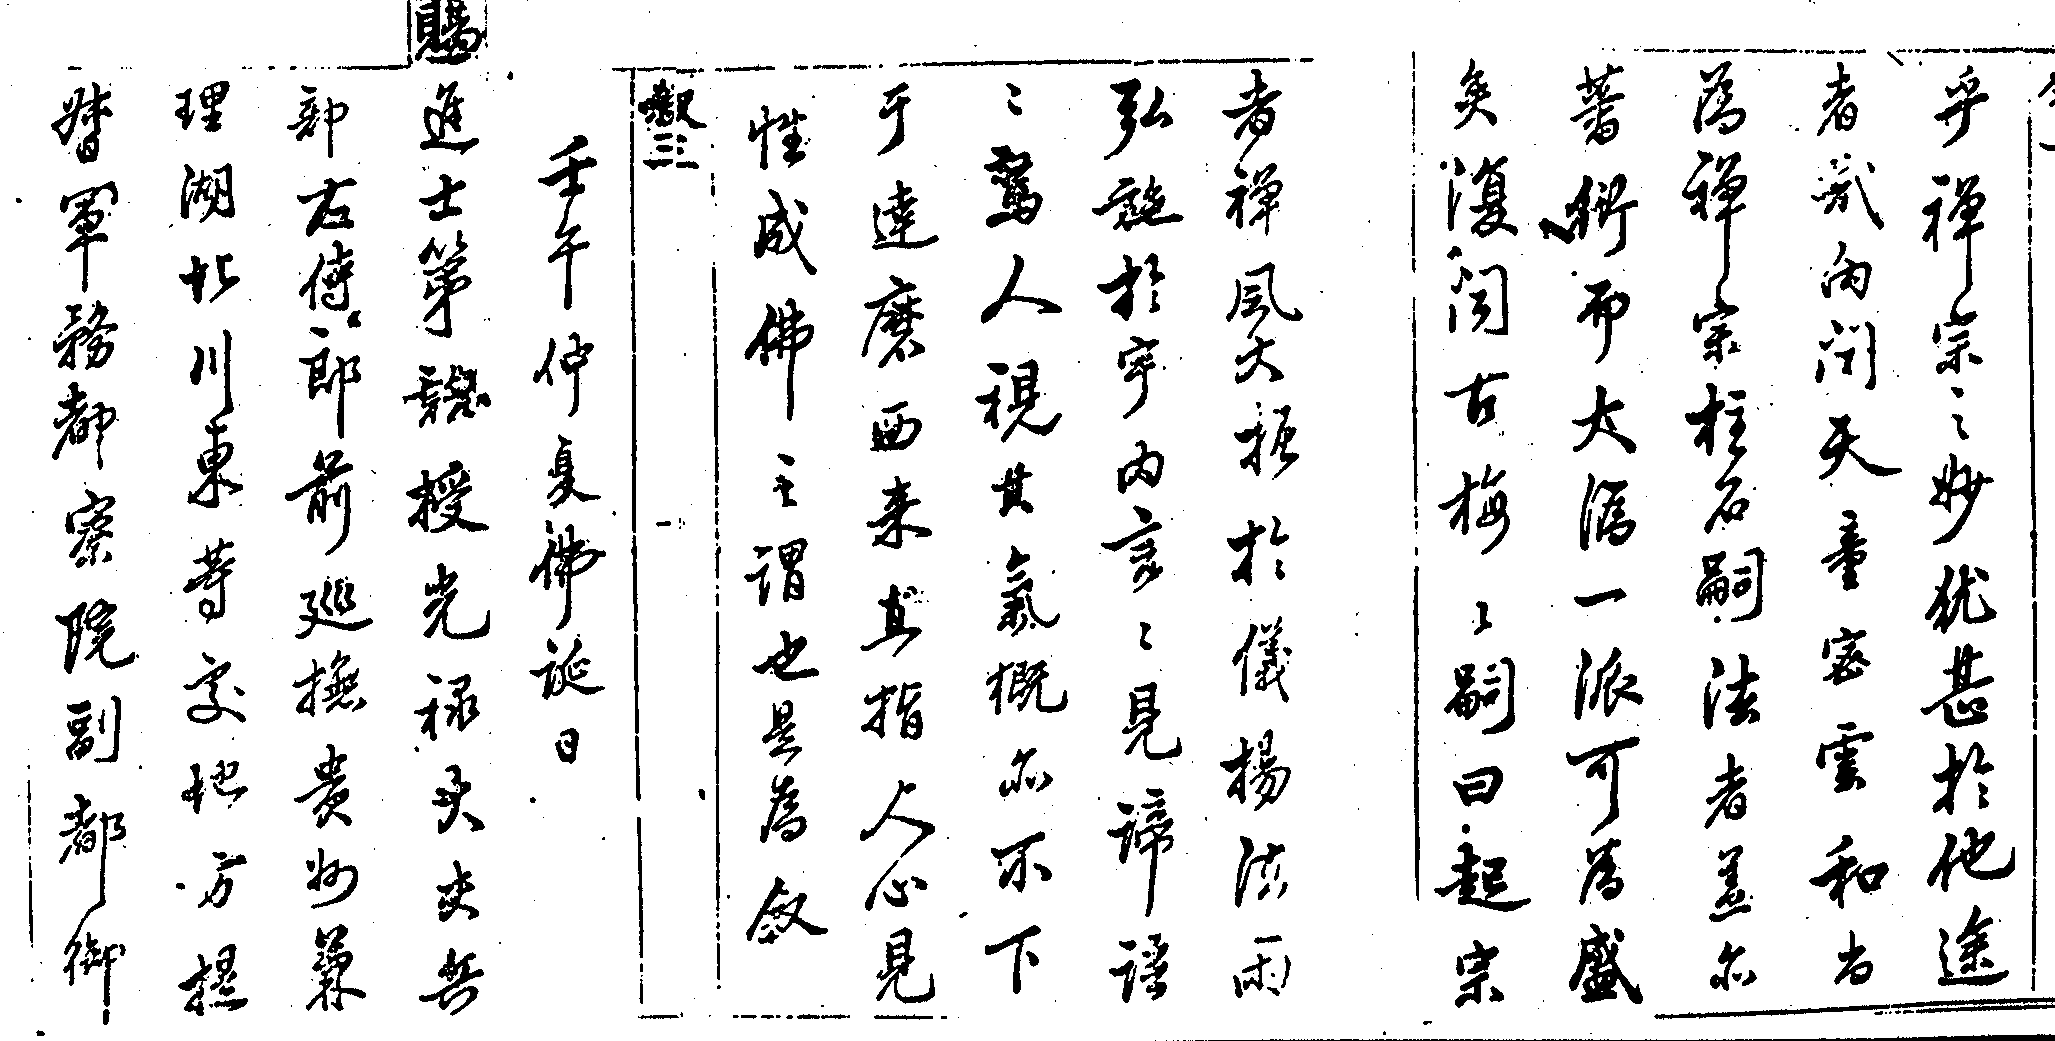 乎禪宗之妙猶甚於他途
者哉向聞天童密雲和尚
為禪宗柱石嗣法者蓋亦
蕃衍而大溈一派可為盛
矣復聞古梅〻嗣曰起宗
者禪風大振於儀揚法雨
弘施於宇內言〻見諦語
〻驚人視其氣概亦不下
于達磨西來直指人心見
性成佛之謂也是為敘
敘三
壬午仲夏佛誕日
賜
進士第 授光祿大夫兵
部右侍郎前巡撫貴州兼
理湖北川東等處地方提
督軍務都察院副都御